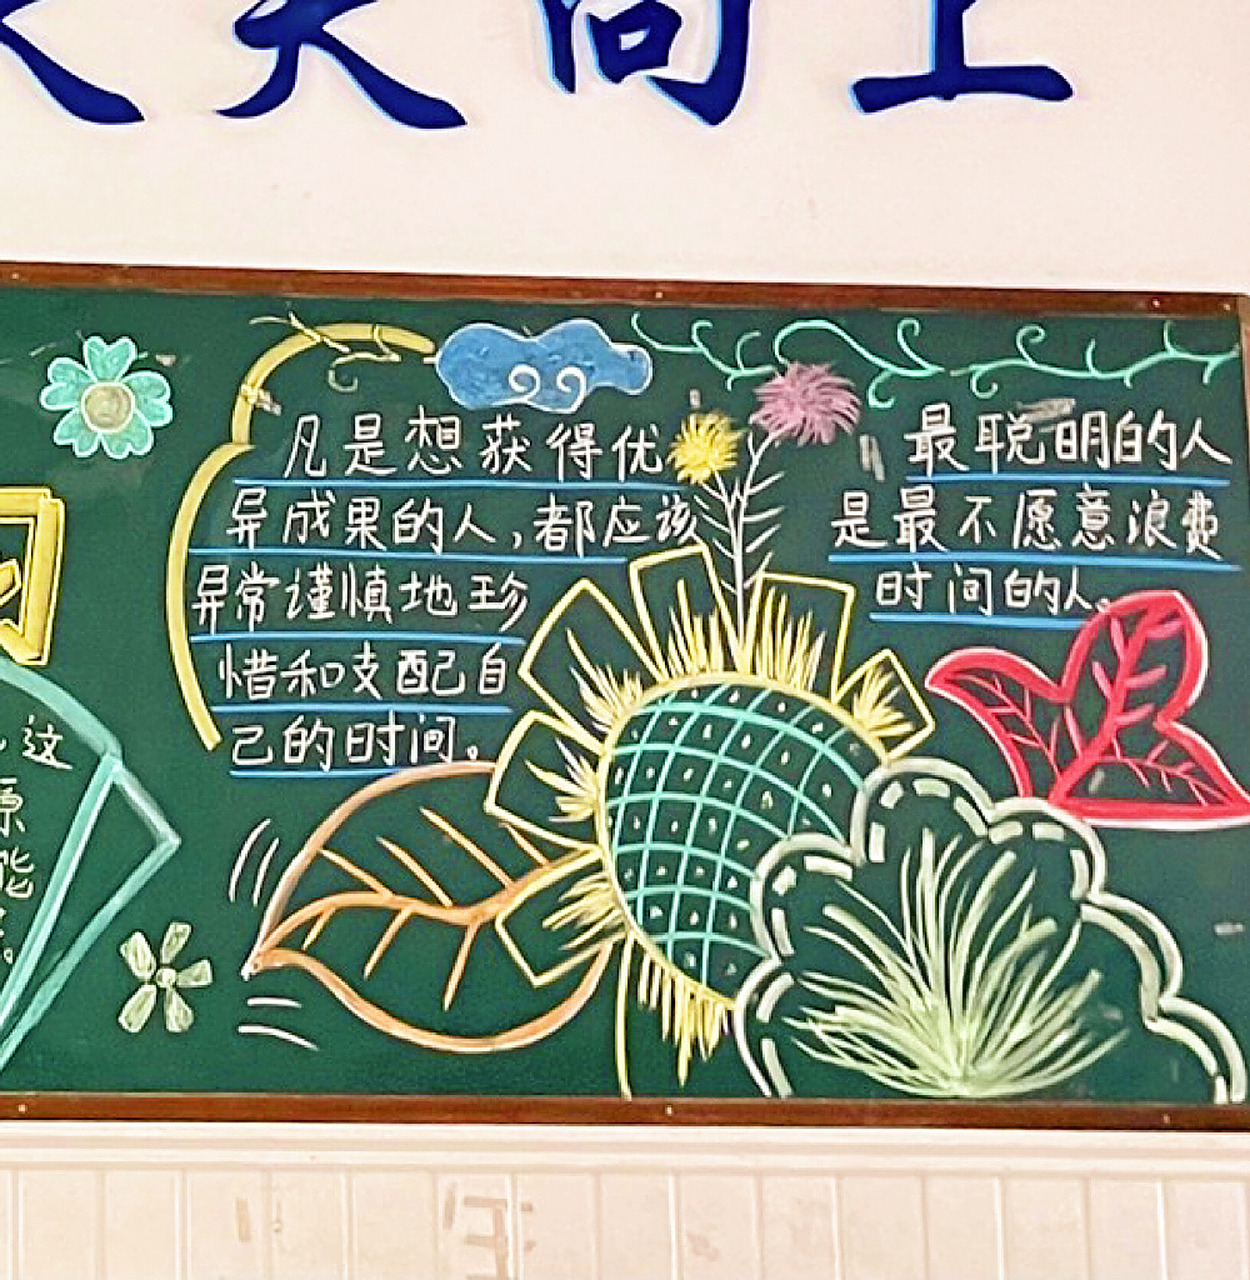 天天向上
凡是想获得优
异成果的人,都应该
异常谨慎地珍
惜和支配自
己的时间。
最聪明的人
是最不愿意浪费
时间的人。
这
能